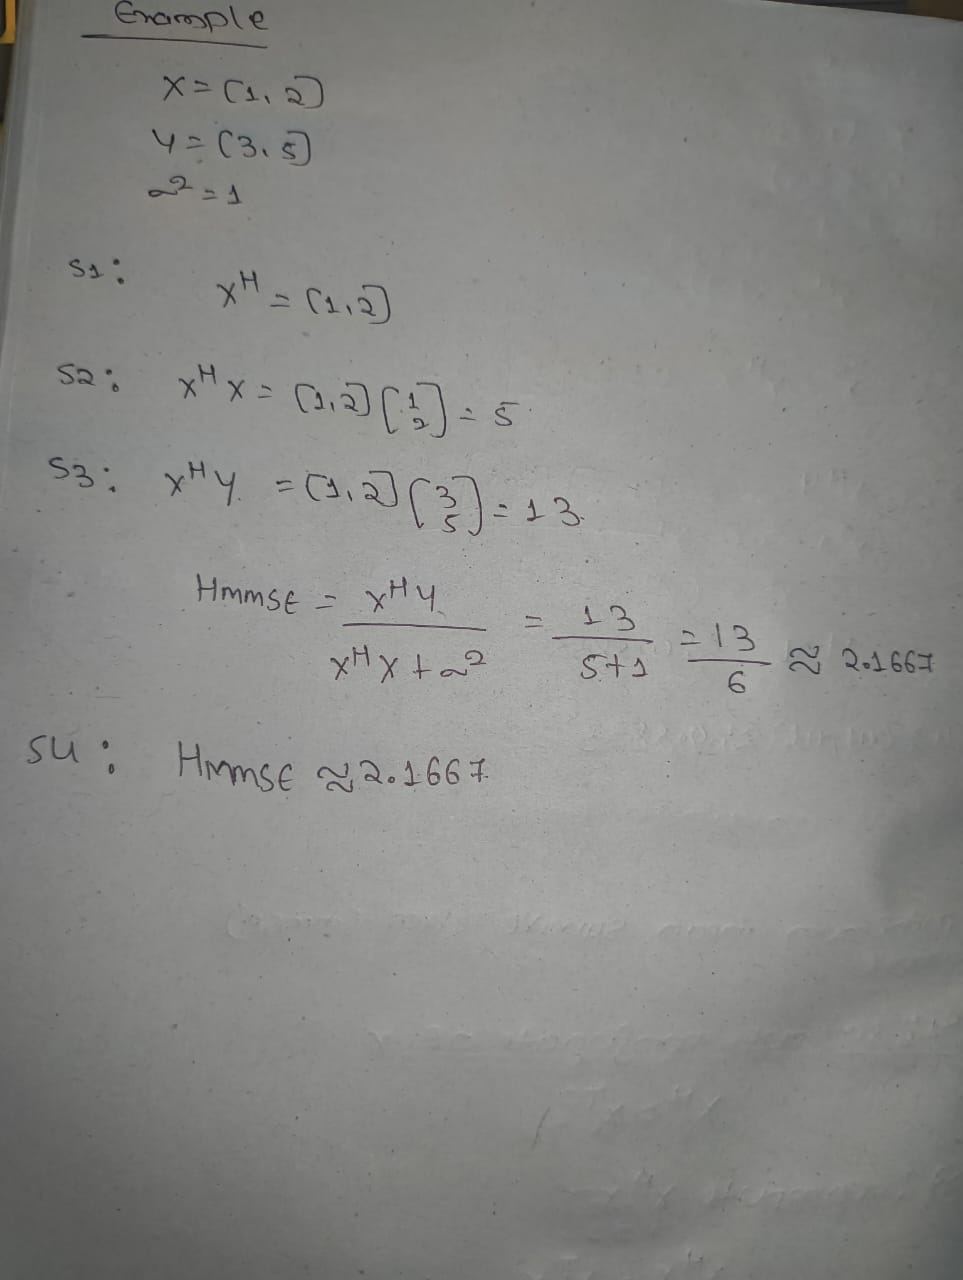 Example
x = [1, 2]
y = [3, 5]
σ² = 1
S1: xᴴ = [1, 2]
S2: xᴴx = [1, 2] [1 2] = 5
S3: xᴴy = [1, 2] [3 5] = 13
Hmmse = xᴴy / xᴴx + σ² = 13 / 5+1 = 13 / 6 ≈ 2.1667
S4: Hmmse ≈ 2.1667